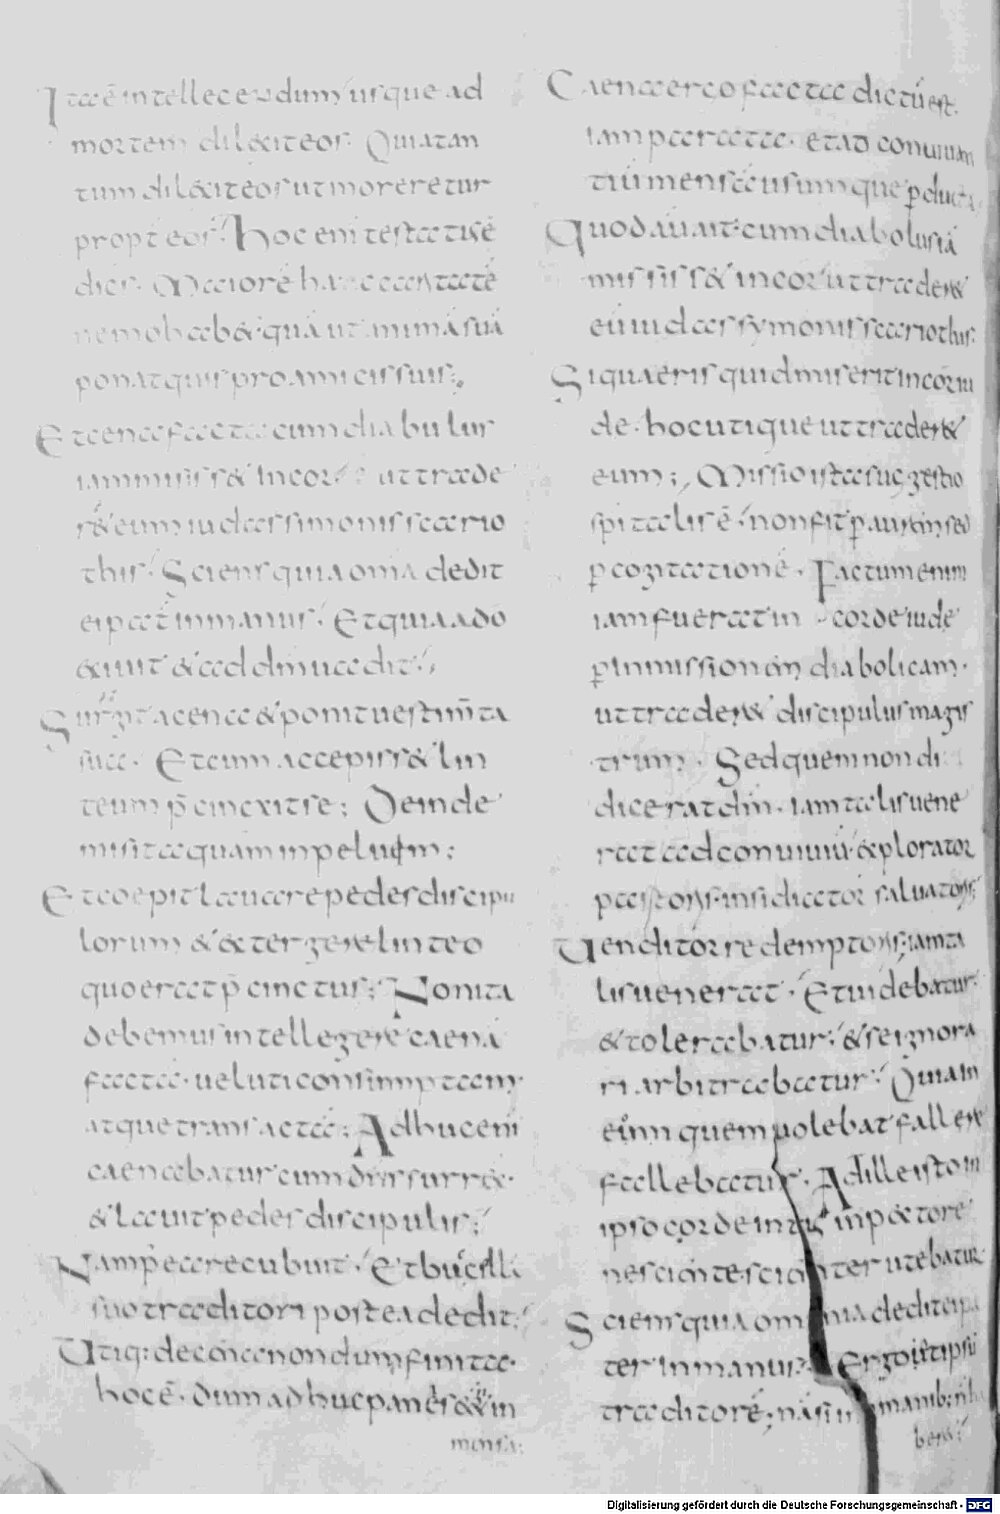 Ita ē intellegendum usque ad
mortem dilexit eos. Quia tan
tum dilexit eos ut moreretur
propt eos. Hoc eni testatus ē
dicens. Maiorē hac caritatē
nemo habet quā ut animā suā
ponat quis pro amicis suis.
Et cena facta cum diabulus
iam misisset in cor ut trade
ret eum iudas simonis scario
this. Sciens quia omīa dedit
ei pat in manus. Et quia a dō
exiuit & ad dm̄ uadit.
Surgit a cena & ponit uestim̄ta
sua. Et cum accepisset lin
teum p̄cinxit se; Deinde
misit aquam in peluem;
Et coepit lauare pedes discipu
lorum & extergere linteo
quo erat p̄cinctus; Non ita
debemus intellegere caenā
factā. ueluti consumptam
atque transactā; Adhuc eni
caenabatur cum dn̄s surrex.
& lauit pedes discipulis;
Nam p̄ea recubuit. Et bucellā
suo traditori postea dedit;
Utiq: de cena nondum finita.
hoc ē. dum adhuc panes ēet in
mensa;
Caena ergo facta dictū est.
iam parata. et ad conuiuan
tiū mensā usumque pducta.
Quod au ait. cum diabolus iā
misisset in cor ut traderet
eū iudas symonis scariothis.
Si quaeris quid miserit in cor iu
de. hoc utique ut traderet
eum; Missio ista suggestio
spitalis ē. non fit p aurem sed
p cogitationē. Factum enim
iam fuerat in corde iudę
p inmissionem diabolicam.
ut traderet discipulus magis
trum. Sed quem non di
dicerat dm̄. iam talis uene
rat ad conuiuiū. explorator
pastoris. insidiator saluatoris;
Uenditor redemptoris; iam ta
lis uenerat. Et uidebatur.
& tolerabatur. & se ignora
ri arbitrabatur. Quia in
eūm quem uolebat fallere
fallebatur. Ad ille isto in
ipso corde intus inspectore
nesciente scienter utebatur
Sciens quia omnia dedit ei pa
ter in manus. Ergo & ipsū
traditorē; nā si in manib; n̄ ha
beret;